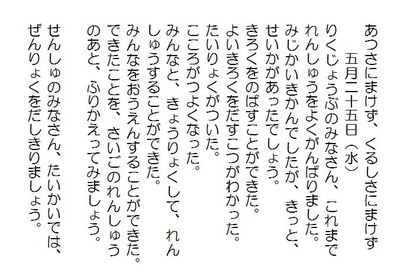 あつさにまけず、くるしさにまけず
五月二十五日（水）
りくじょうぶのみなさん、これまで
れんしゅうをよくがんばりました。
みじかいきかんでしたが、きっと、
せいかがあったでしょう。
きろくをのばすことができた。
よいきろくをだすこつがわかった。
たいりょくがついた。
こころがつよくなった。
みんなと、きょうりょくして、れん
しゅうすることができた。
みんなをおうえんすることができた。
できたことを、さいごのれんしゅう
のあと、ふりかえってみましょう。
せんしゅのみなさん、たいかいでは、
ぜんりょくをだしきりましょう。